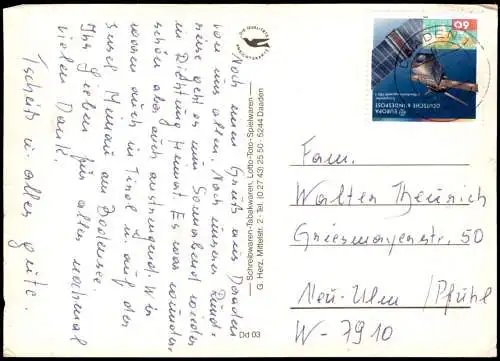 Noch einen Gruß aus Daaden
von uns allen. Nach unserer Rund-
reise geht es nun Sonnabend wieder
in Richtung Heimat. Es war wunder-
schön aber auch anstrengend. Wir
waren auch in Tirol u. auf der
Insel Mainau am Bodensee.
Ihr Lieben für alles nochmal
vielen Dank.
Tschüß u. alles gute.
Schreibwaren-Tabakwaren, Lotto-Toto-Spielwaren
G. Herz, Mittelstr. 2 - Tel. (0 27 43) 25 50 - 5244 Daaden
Dd 03
60
EUROPA
DEUTSCHE BUNDESPOST
Fam.
Walter Theurich
50
Neu-Ulm / Pfuhl
W-7910